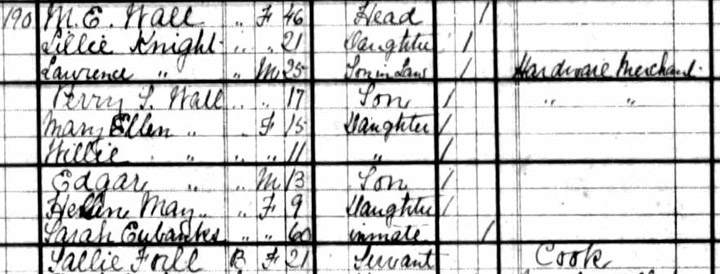 190 M. E. Wall " F 46 Head 1
Lillie Knight " " 21 Daughter 1
Lawrence " " M 25 Son in Law 1 Hardware Merchant
Perry S. Wall " " 17 Son 1 " "
Mary Ellen " " F 15 Daughter 1
Willie " " " 11 " 1
Edgar " " M 13 Son 1
Helen May " " F 9 Daughter 1
Sarah Eubanks " " 60 inmate 1
Sallie B F 21 Servant Cook